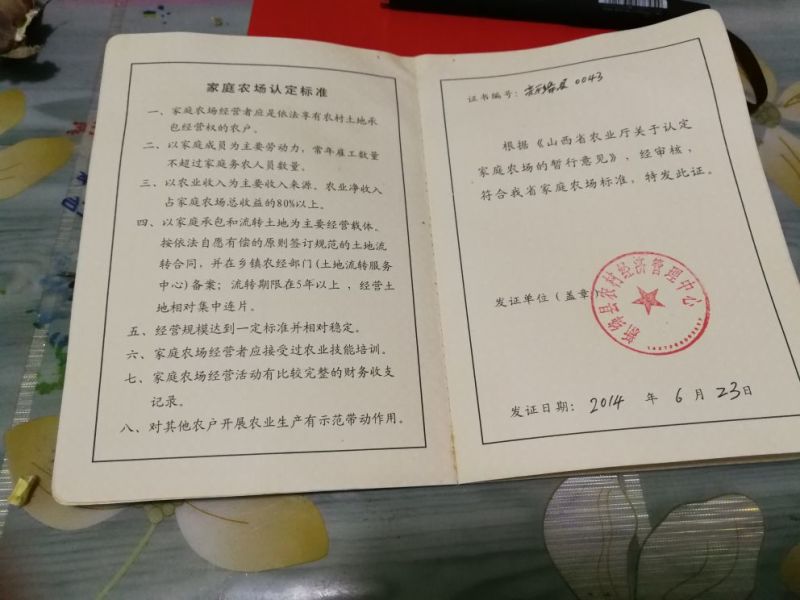 家庭农场认定标准
一、家庭农场经营者应是依法享有农村土地承
包经营权的农户。
二、以家庭成员为主要劳动力，常年雇工数量
不超过家庭务农人员数量。
三、以农业收入为主要收入来源，农业净收入
占家庭农场总收益的80%以上。
四、以家庭承包和流转土地为主要经营载体。
按依法自愿有偿的原则签订规范的土地流
转合同，并在乡镇农经部门(土地流转服务
中心)备案；流转期限在5年以上，经营土
地相对集中连片。
五、经营规模达到一定标准并相对稳定。
六、家庭农场经营者应接受过农业技能培训。
七、家庭农场经营活动有比较完整的财务收支
记录。
八、对其他农户开展农业生产有示范带动作用。
证书编号： 0043
根据《山西省农业厅关于认定
家庭农场的暂行意见》，经审核，
符合我省家庭农场标准，特发此证。
发证单位（盖章）
新绛县农村经济管理中心
发证日期： 2014 年 6 月 23 日